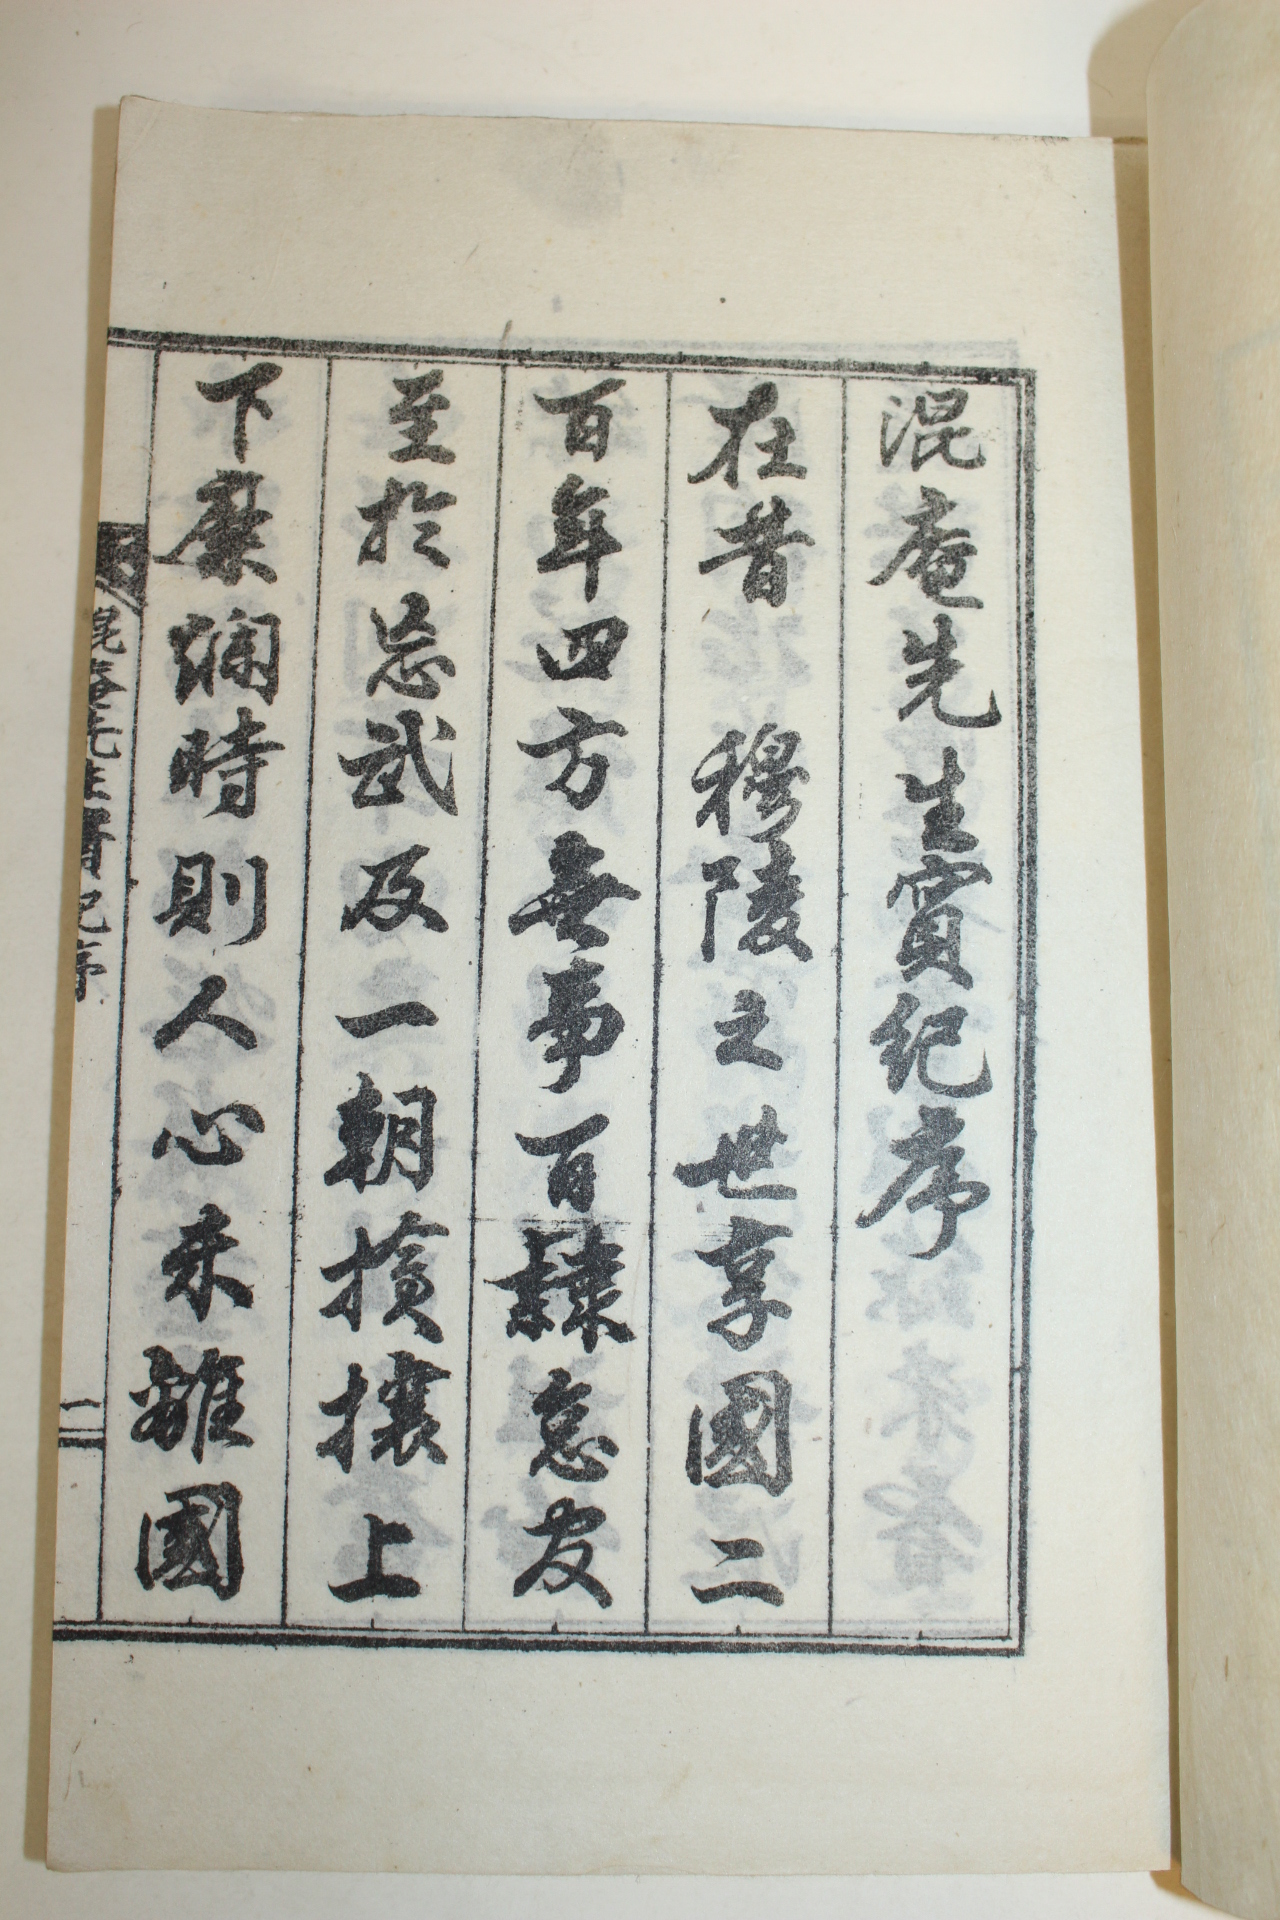 混庵先生實紀序
在昔 穆陵之世享國二
百年四方無事百隷怠友
至於忘武及一朝搶攘上
下糜爛時則人心未離國
混庵先生實紀序
一